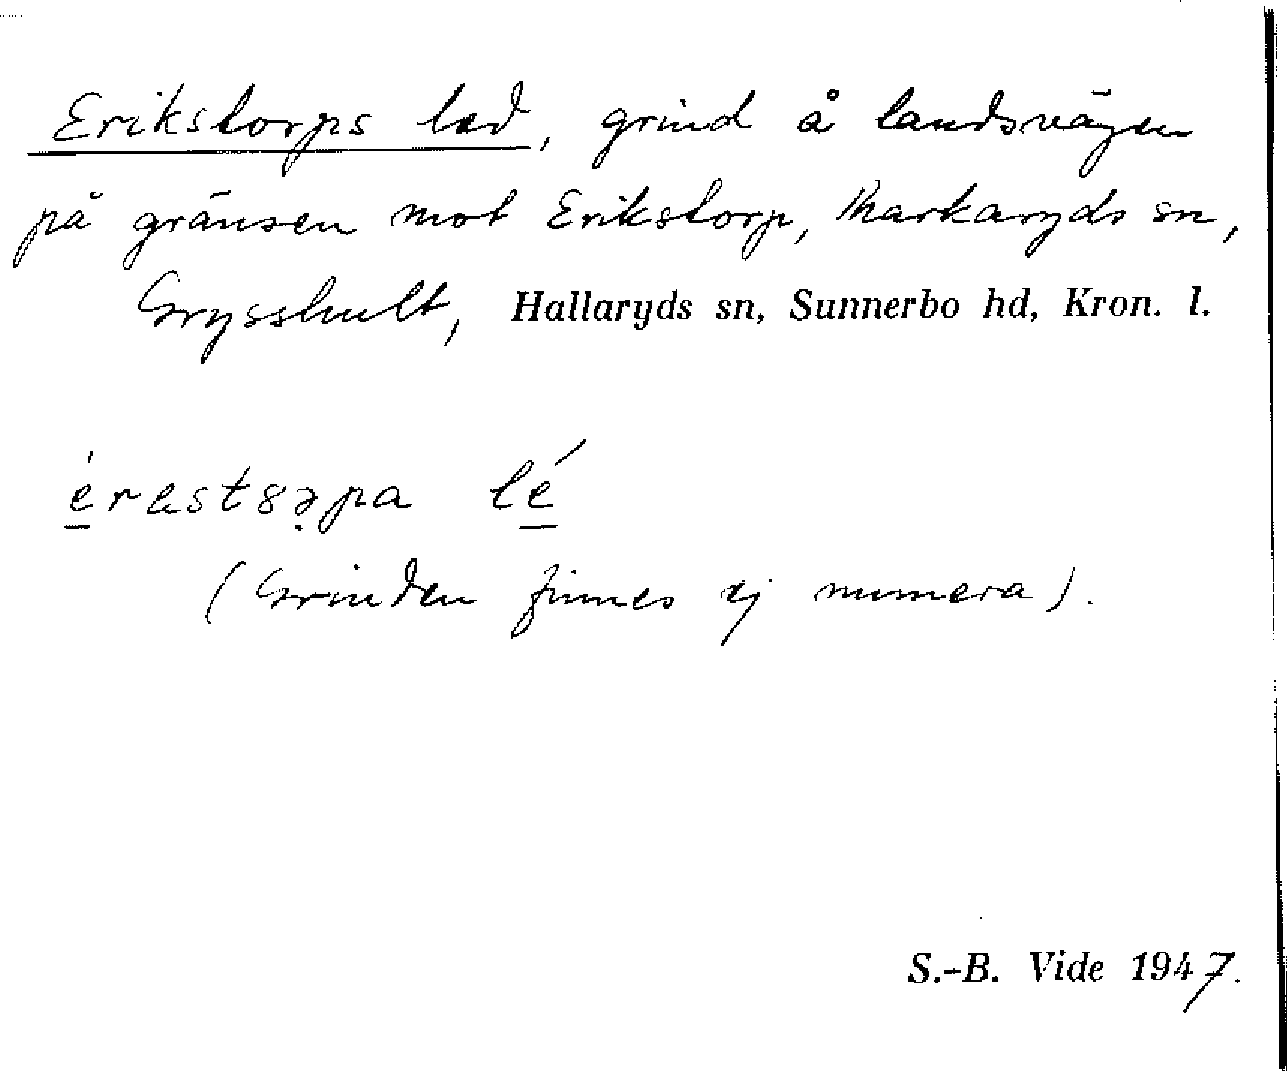 Erikstorps led, grind å landsvägen
på gränsen mot Erikstorp, Markaryds sn,
Grysshult, Hallaryds sn, Sunnerbo hd, Kron. l.
lé
(Grinden finnes ej numera).
S.-B. Vide 1947.